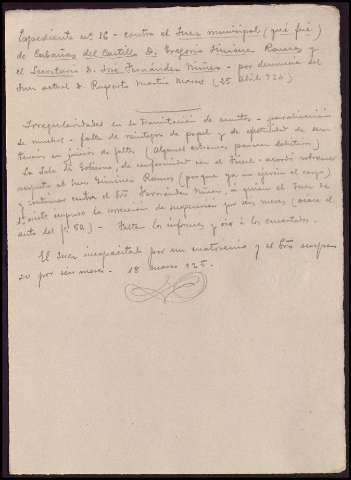 Expediente nº 16 - contra el Juez municipal (que fué)
de Cabañas del Castillo D. Gregorio Jiménez Ramos y
el Secretario D. José Fernández Muñoz - por denuncia del
Juez actual D. Ruperto Martín (25 Abril 924)
Irregularidades en la tramitación de asuntos - paralización
de muchos - falta de reintegro de papel y de efectividad de
en juicios de faltas. (Algunos extremos parecen delictivos)
La Sala de Gobierno, de conformidad con el Fiscal - acordó sobreseer
respecto al Juez Jiménez Ramos (porque ya no ejercía el cargo)
y continuar contra el Srio Fernández Muñoz - á quien el Juez de
impuso la corrección de suspensión por seis meses
auto del fº 80) - Faltan los informes y oir á los encartados.
El Juez incapacitado por un cuatrienio y el Srio
por seis meses. 18 marzo 925.